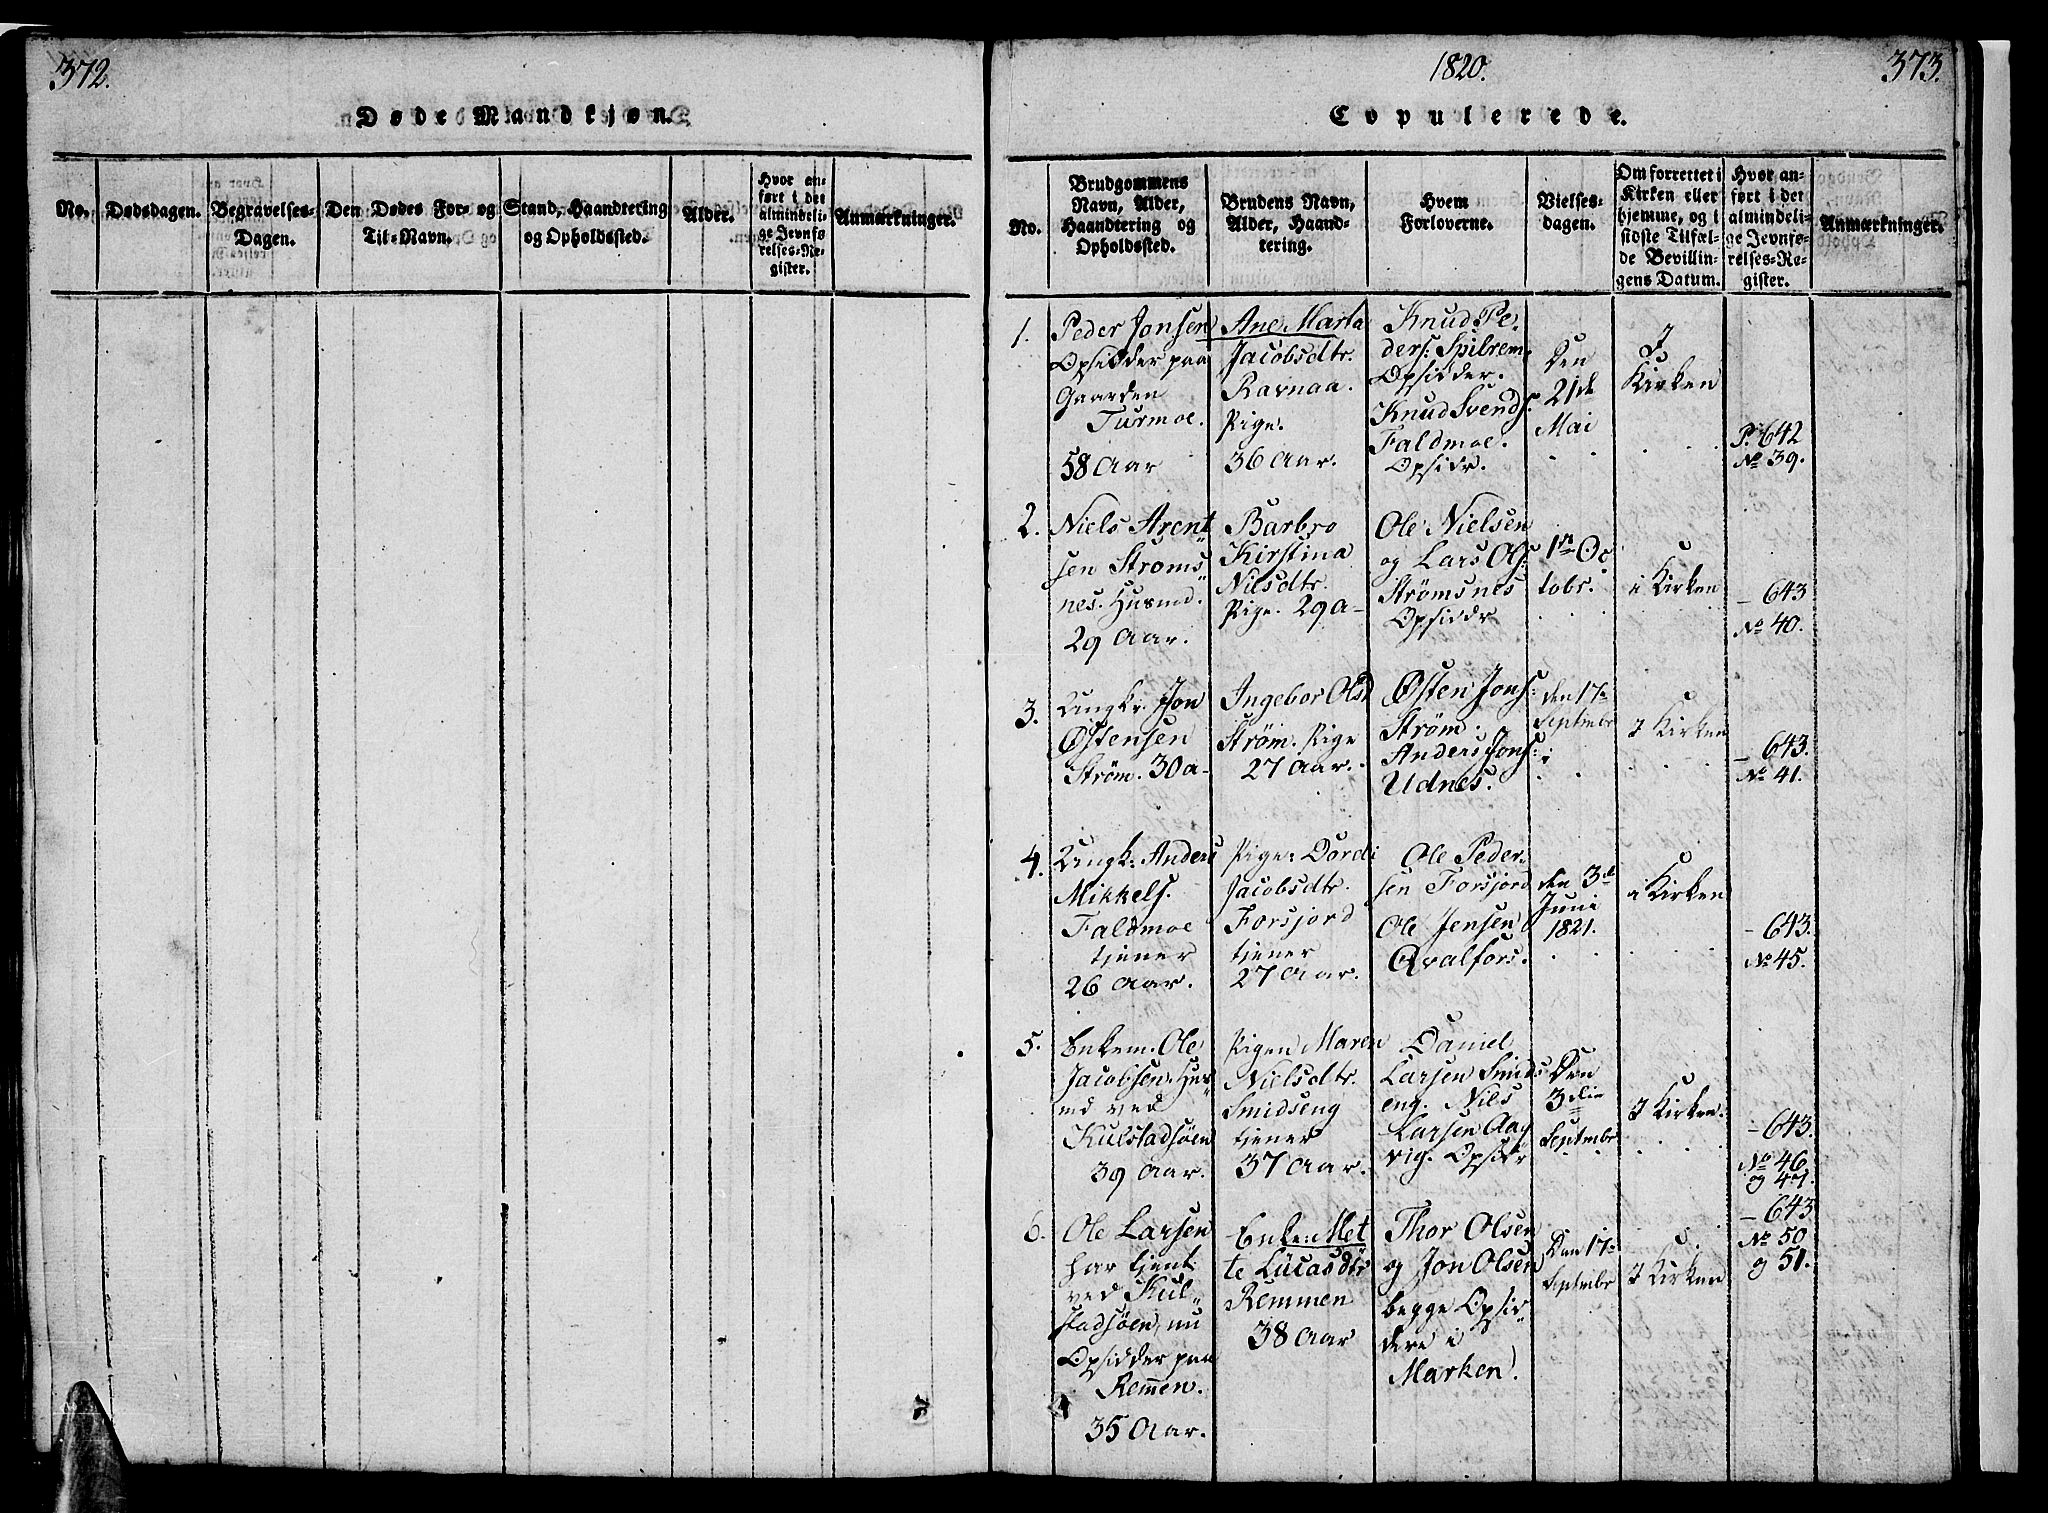 372.
Døde Mandkjøn.
No.
Dødsdagen.
Begravelses-
Dagen.
Den Dødes For- og
Til-Navn.
Stand, Haandtering
og Opholdssted.
Alder.
Hvor an-
ført i det
almindeli-
ge Jevnfø-
relses-Re-
gister.
Anmærkninger.
1820.
373.
Copulerede.
No.
Brudgommens
Navn, Alder,
Haandtering og
Opholdssted.
Brudens Navn,
Alder, Haand-
tering.
Hvem
Forloverne.
Vielses-
dagen.
Om forrettet i
Kirken eller
hjemme, og i
sidste Tilfæl-
de Bevillin-
gens Datum.
Hvor an-
ført i det
almindeli-
ge Jevnfø-
relses-Re-
gister.
Anmærkninger.
1.
Peder Jonsen
Opsidder paa
Gaarden
Turmoe.
58 Aar
Ane Marta
Jacobsdtr.
Ravnaa.
Pige.
36 Aar.
Knud Pe-
ders: Spilrem.
Opsidder.
Knud Svends.
Faldmoe.
Opsidr.
Den
21de
Mai
I
Kirken
P. 642
No 39.
2.
Niels Arent
sen Strøms
nes. Husmd.
29 Aar.
Barbro
Kirstina
Nilsdtr.
Pige. 29 a-
Ole Nielsen
og Lars Ols.
Strømsnes
Opsiddr
1n Oc
tobr.
i Kirken
- 643
No 40.
3.
Ungkr. Jon
Østensen
Strøm. 30 a-
Ingebor Olsd
Strøm. Pige
27 Aar.
Østen Jons:
Strøm.
Anders Jons:
Udnes.
den 17n
Septmbr
I Kirken
- 643.
No 41.
4.
Ungk: Anders
Mikkels.
Faldmoe
tjener
26 Aar.
Pige: Dordi
Jacobsdtr.
Forsjord
tjener
27 Aar.
Ole Peder-
sen Forsjord
Ole Jensen
Qvalfors.
den 3de
Juni
1821.
i Kirken
- 643.
No 45.
5.
Enkem. Ole
Jacobsen. Hus
md ved
Kulstadsøen
39 Aar.
Pigen Maren
Nielsdtr.
Smidseng
tjener
37 Aar.
Daniel
Larsen Smids
eng. Nils
Larsen Aag
vig. Opsidr
Den
3die
Septmbr
I Kirken.
- 643.
No 46
og 47.
6.
Ole Larsen
har tjent
ved Kul-
stadsøen, nu
Opsidder paa
Remen.
35 Aar.
Enke: Met
te Lucasdtr
Remmen
38 Aar
Thor Olsen
og Jon Olsen
begge Opsid
dere i
Marken.
Den 17n
Septmbr
I Kirken
- 643
No 50
og 51.